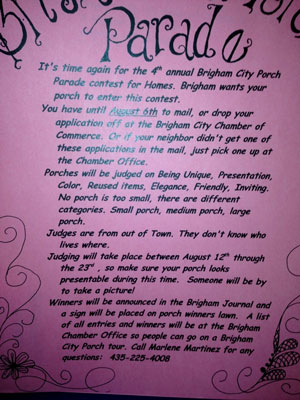 Parade
It's time again for the 4th annual Brigham City Porch
Parade contest for Homes. Brigham wants your
porch to enter this contest.
You have until August 6th to mail, or drop your
application off at the Brigham City Chamber of
Commerce. Or if your neighbor didn't get one of
these applications in the mail, just pick one up at
the Chamber Office.
Porches will be judged on Being Unique, Presentation,
Color, Reused items, Elegance, Friendly, Inviting.
No porch is too small, there are different
categories. Small porch, medium porch, large
porch.
Judges are from out of Town. They don't know who
lives where.
Judging will take place between August 12th through
the 23rd, so make sure your porch looks
presentable during this time. Someone will be by
to take a picture!
Winners will be announced in the Brigham Journal and
a sign will be placed on porch winners lawn. A list
of all entries and winners will be at the Brigham
Chamber Office so people can go on a Brigham
City Porch tour. Call Marlene Martinez for any
questions: 435-225-4008